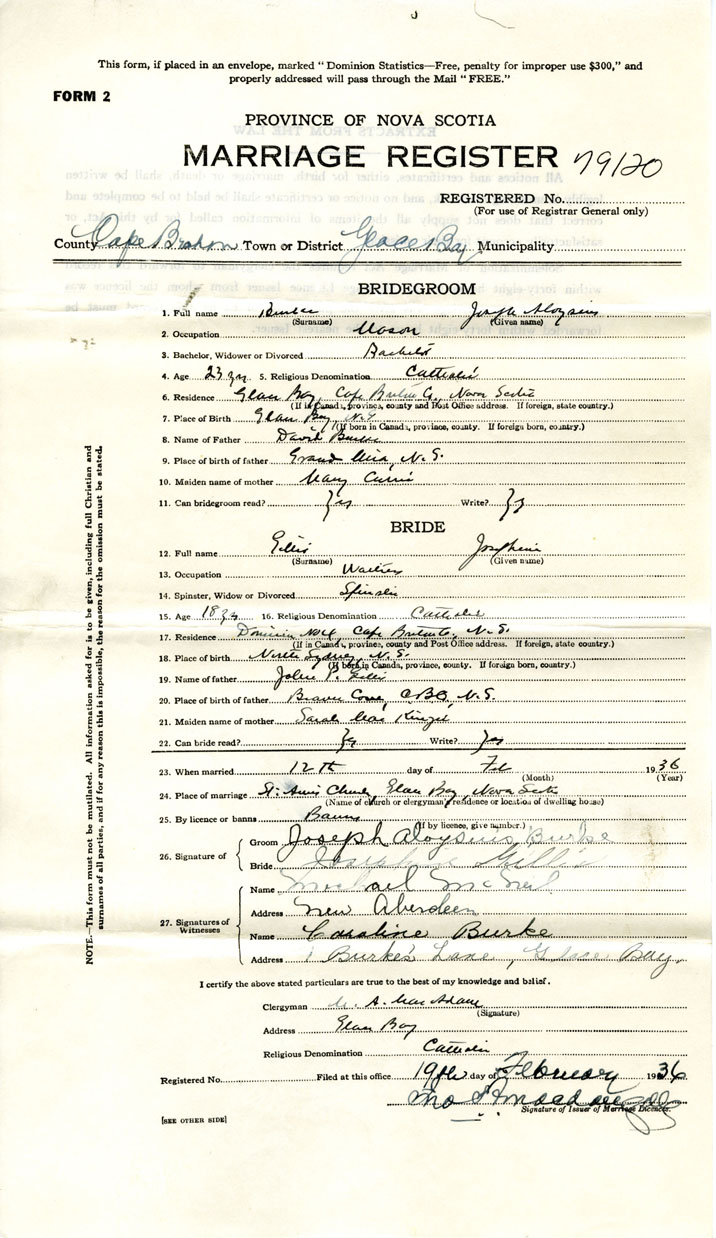 This form, if placed in an envelope, marked "Dominion Statistics—Free, penalty for improper use $300," and
properly addressed will pass through the Mail "FREE."
FORM 2
PROVINCE OF NOVA SCOTIA
MARRIAGE REGISTER 79120
REGISTERED No.
(For use of Registrar General only)
County Cape Breton Town or District Glace Bay Municipality
BRIDEGROOM
1. Full name Burke Joseph Aloysius
(Surname) (Given name)
2. Occupation Mason
3. Bachelor, Widower or Divorced Bachelor
4. Age 23 yrs 5. Religious Denomination Catholic
6. Residence Glace Bay, Cape Breton Co, Nova Scotia
(If in Canada, province, county and Post Office address. If foreign, state country.)
7. Place of Birth Glace Bay, N.S.
(If born in Canada, province, county. If foreign born, country.)
8. Name of Father David Burke
9. Place of birth of father Grand Mira, N.S.
10. Maiden name of mother Mary Currie
11. Can bridegroom read? yes Write? yes
BRIDE
12. Full name Gillis Josephine
(Surname) (Given name)
13. Occupation Waitress
14. Spinster, Widow or Divorced Spinster
15. Age 18 yrs 16. Religious Denomination Catholic
17. Residence Dominion No 4, Cape Breton Co, N.S.
(If in Canada, province, county and Post Office address. If foreign, state country.)
18. Place of birth North Sydney, N.S.
(If born in Canada, province, county. If foreign born, country.)
19. Name of father John P. Gillis
20. Place of birth of father Beaver Cove, C.B.Co, N.S.
21. Maiden name of mother Sarah Mac Kenzie
22. Can bride read? yes Write? yes
23. When married 12th day of Feb 1936
(Month) (Year)
24. Place of marriage St. Ann's Church, Glace Bay, Nova Scotia
(Name of church or clergyman's residence or location of dwelling house)
25. By licence or banns Banns
(If by licence, give number.)
26. Signature of
Groom Joseph Aloysius Burke
Bride Josephine Gillis
27. Signatures of Witnesses
Name Michael McNeil
Address New Aberdeen
Name Caroline Burke
Address Burke's Lane, Glace Bay,
I certify the above stated particulars are true to the best of my knowledge and belief.
Clergyman M. A. MacAdam
(Signature)
Address Glace Bay
Religious Denomination Catholic
Registered No. Filed at this office 19th day of February 1936
Signature of Issuer of Marriage Licences.
[SEE OTHER SIDE]
NOTE.—This form must not be mutilated. All information asked for is to be given, including full Christian and
surnames of all parties, and if for any reason this is impossible, the reason for the omission must be stated.